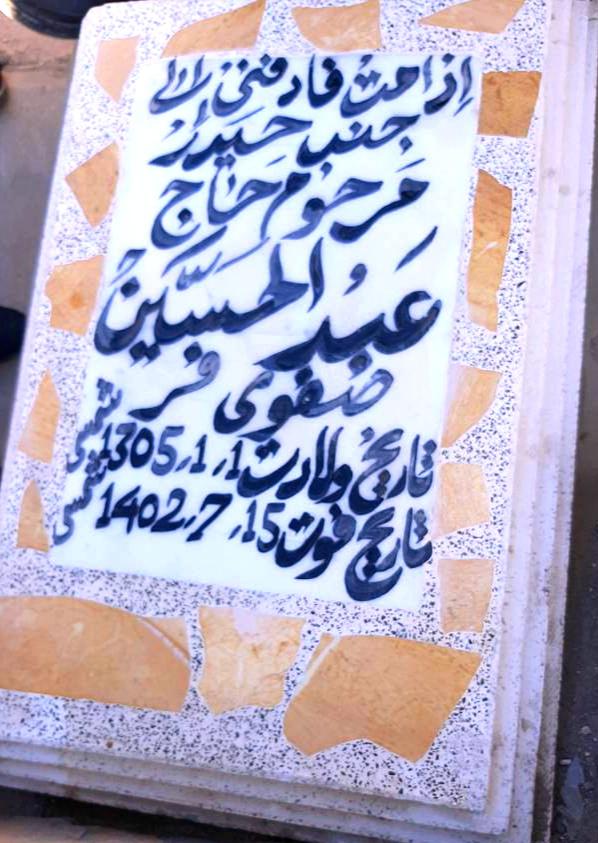 إذا مت فادفني إلى
جنب حيدر
مرحوم حاج
عبد الحسين
صفوی فر
تاریخ ولادت 1،1،1305 شمسی
تاریخ فوت 15،7،1402 شمسی